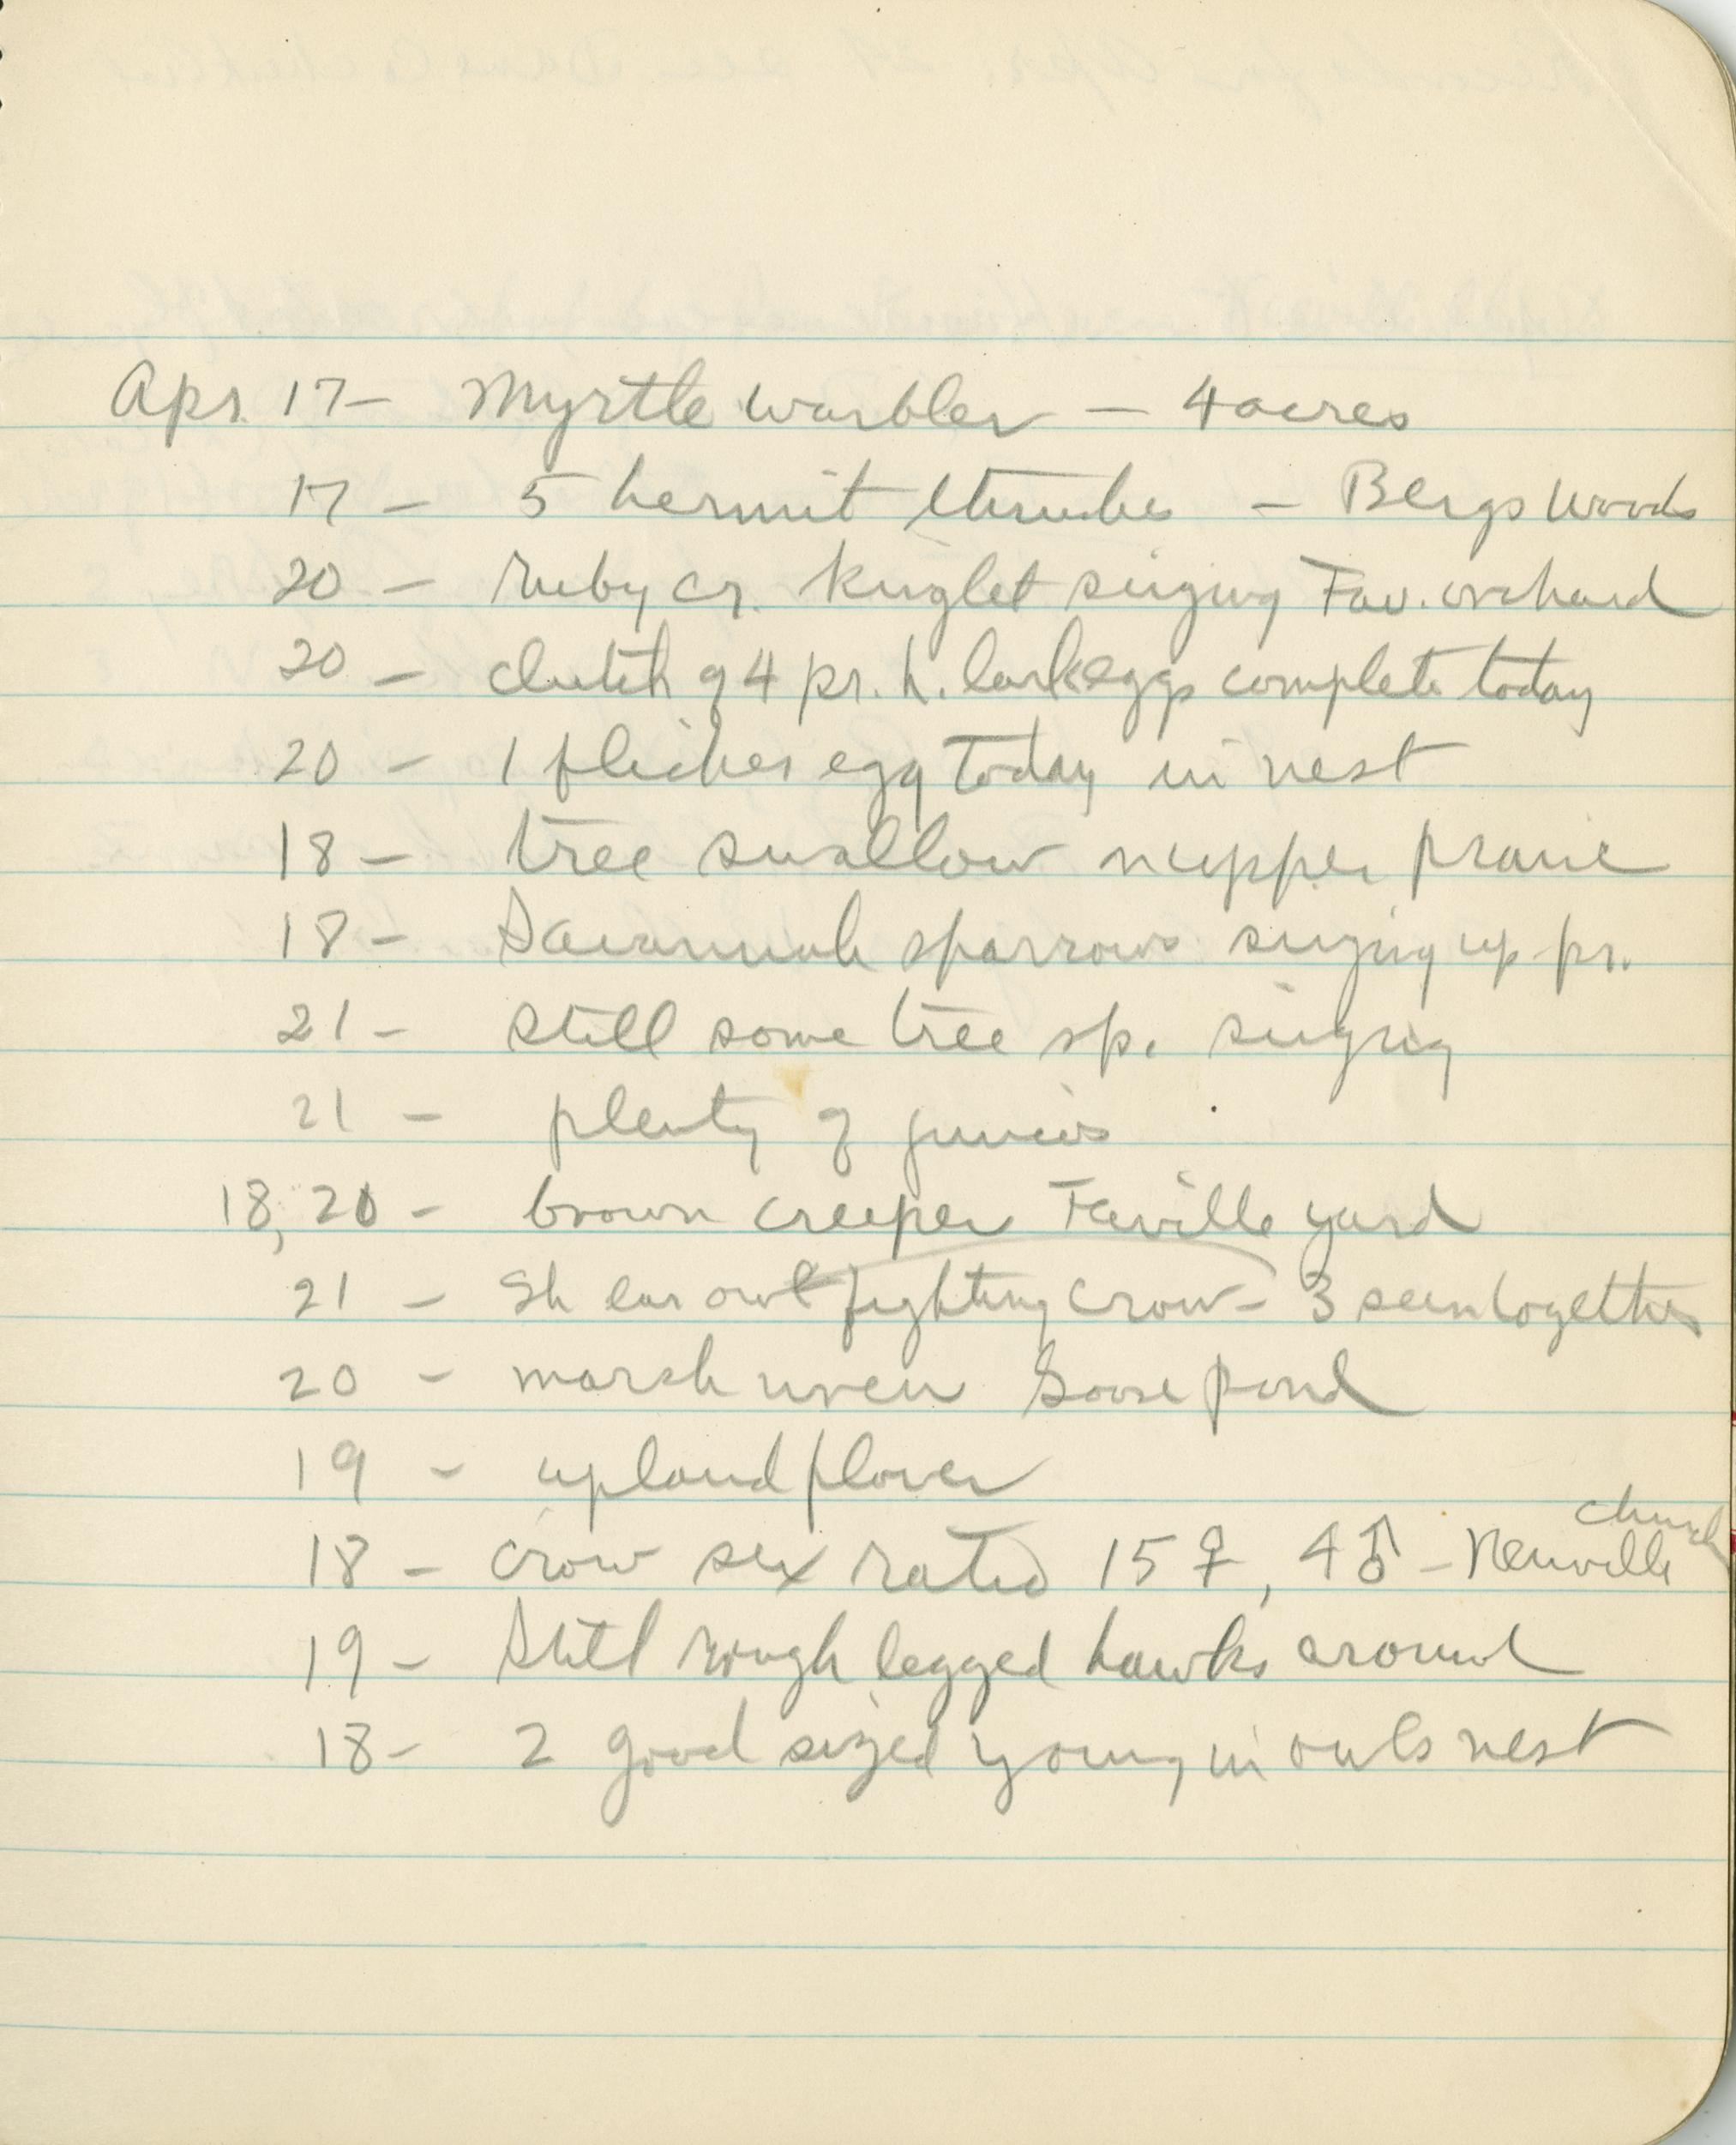 Apr. 17 - Myrtle warbler - 4 acres
17 - 5 hermit thrushes - Bergs Woods
20 - Ruby cr. kinglet singing Fav. orchard
20 - clutch of 4 pr. h. lark eggs complete today
20 - 1 flicker egg today in nest
18 - tree swallow upper prairie
18 - Savannah sparrows singing up. pr.
21 - still some tree sp. singing
21 - plenty of juncos
18, 20 - brown creeper Faville yard
21 - Sh ear owl fighting crow - 3 seen together
20 - marsh wren Goose pond
19 - upland plover
church
18 - crow sex ratio 15 ♀, 4 ♂ - Neuville
19 - Still rough legged hawks around
18 - 2 good sized young in owls nest